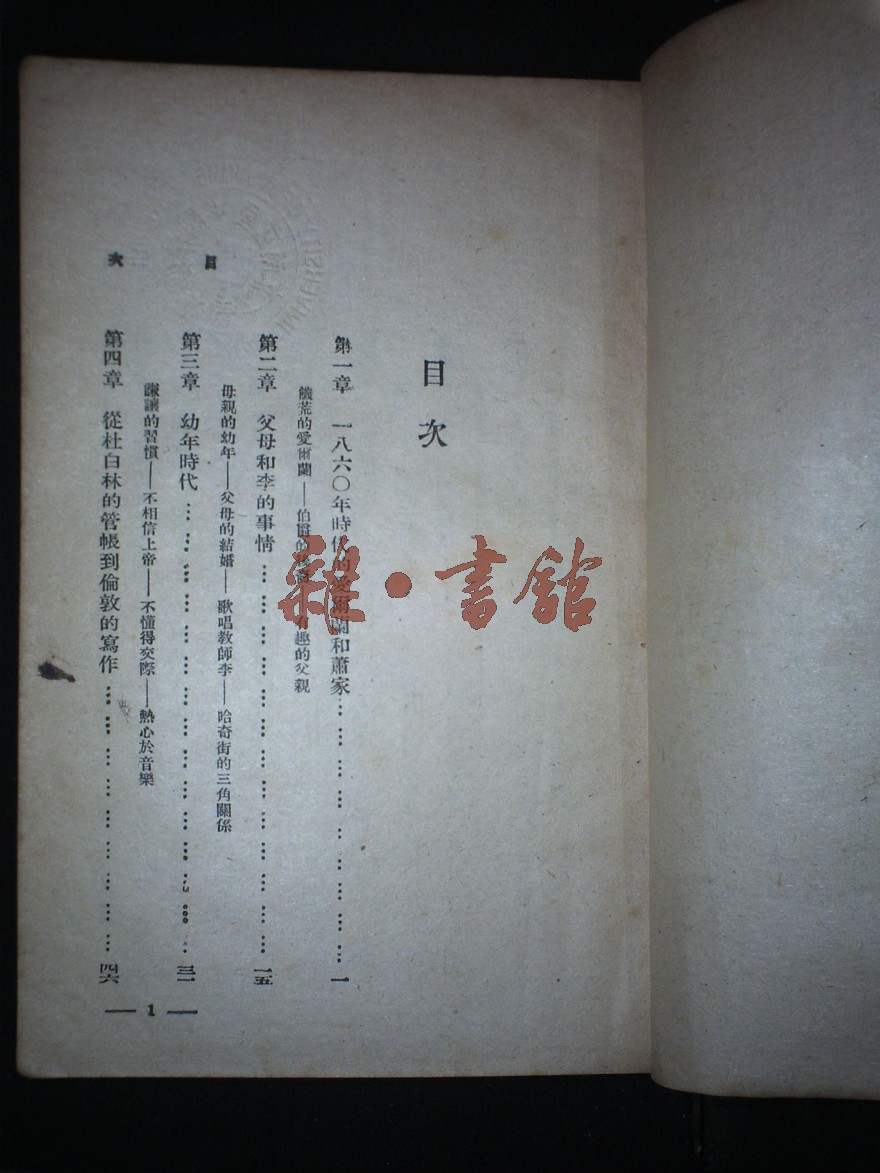 目次
第一章　一八六〇年時代的愛爾蘭和蕭家……………………………一
饑荒的愛爾蘭——伯爵的 有趣的父親
第二章　父母和李的事情……………………………………一五
母親的幼年——父母的結婚——歌唱教師李——哈奇街的三角關係
第三章　幼年時代……………………………………………三一
謙讓的習慣——不相信上帝——不懂得交際——熱心於音樂
第四章　從杜白林的管帳到倫敦的寫作……………………………四六
目次
— 1 —
雜·書館